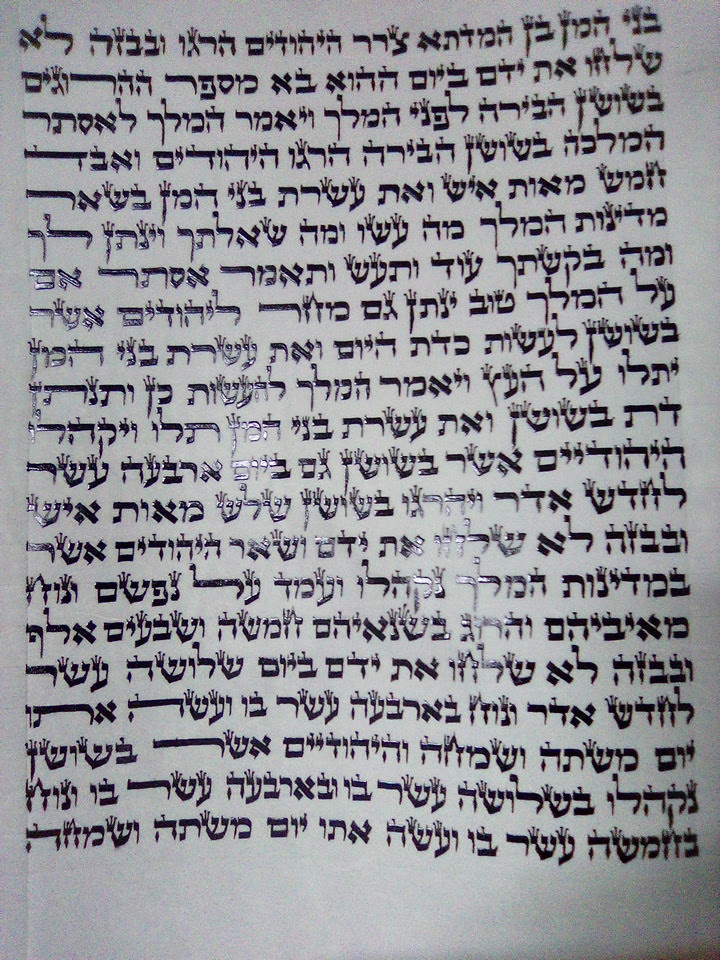 בני המן בן המדתא צרר היהודים הרגו ובבזה לא
שלחו את ידם ביום ההוא בא מספר ההרוגים
בשושן הבירה לפני המלך ויאמר המלך לאסתר
המלכה בשושן הבירה הרגו היהודים ואבד
חמש מאות איש ואת עשרת בני המן בשאר
מדינות המלך מה עשו ומה שאלתך וינתן לך
ומה בקשתך עוד ותעש ותאמר אסתר אם
על המלך טוב ינתן גם מחר ליהודים אשר
בשושן לעשות כדת היום ואת עשרת בני המן
יתלו על העץ ויאמר המלך להעשות כן ותנתן
דת בשושן ואת עשרת בני המן תלו ויקהלו
היהודיים אשר בשושן גם ביום ארבעה עשר
לחדש אדר ויהרגו בשושן שלש מאות איש
ובבזה לא שלחו את ידם ושאר היהודים אשר
במדינות המלך נקהלו ועמד על נפשם ונוח
מאיביהם והרוג בשנאיהם חמשה ושבעים אלף
ובבזה לא שלחו את ידם ביום שלושה עשר
לחדש אדר ונוח בארבעה עשר בו ועשה אתו
יום משתה ושמחה והיהודיים אשר בשושן
נקהלו בשלושה עשר בו ובארבעה עשר בו ונוח
בחמשה עשר בו ועשה אתו יום משתה ושמחה